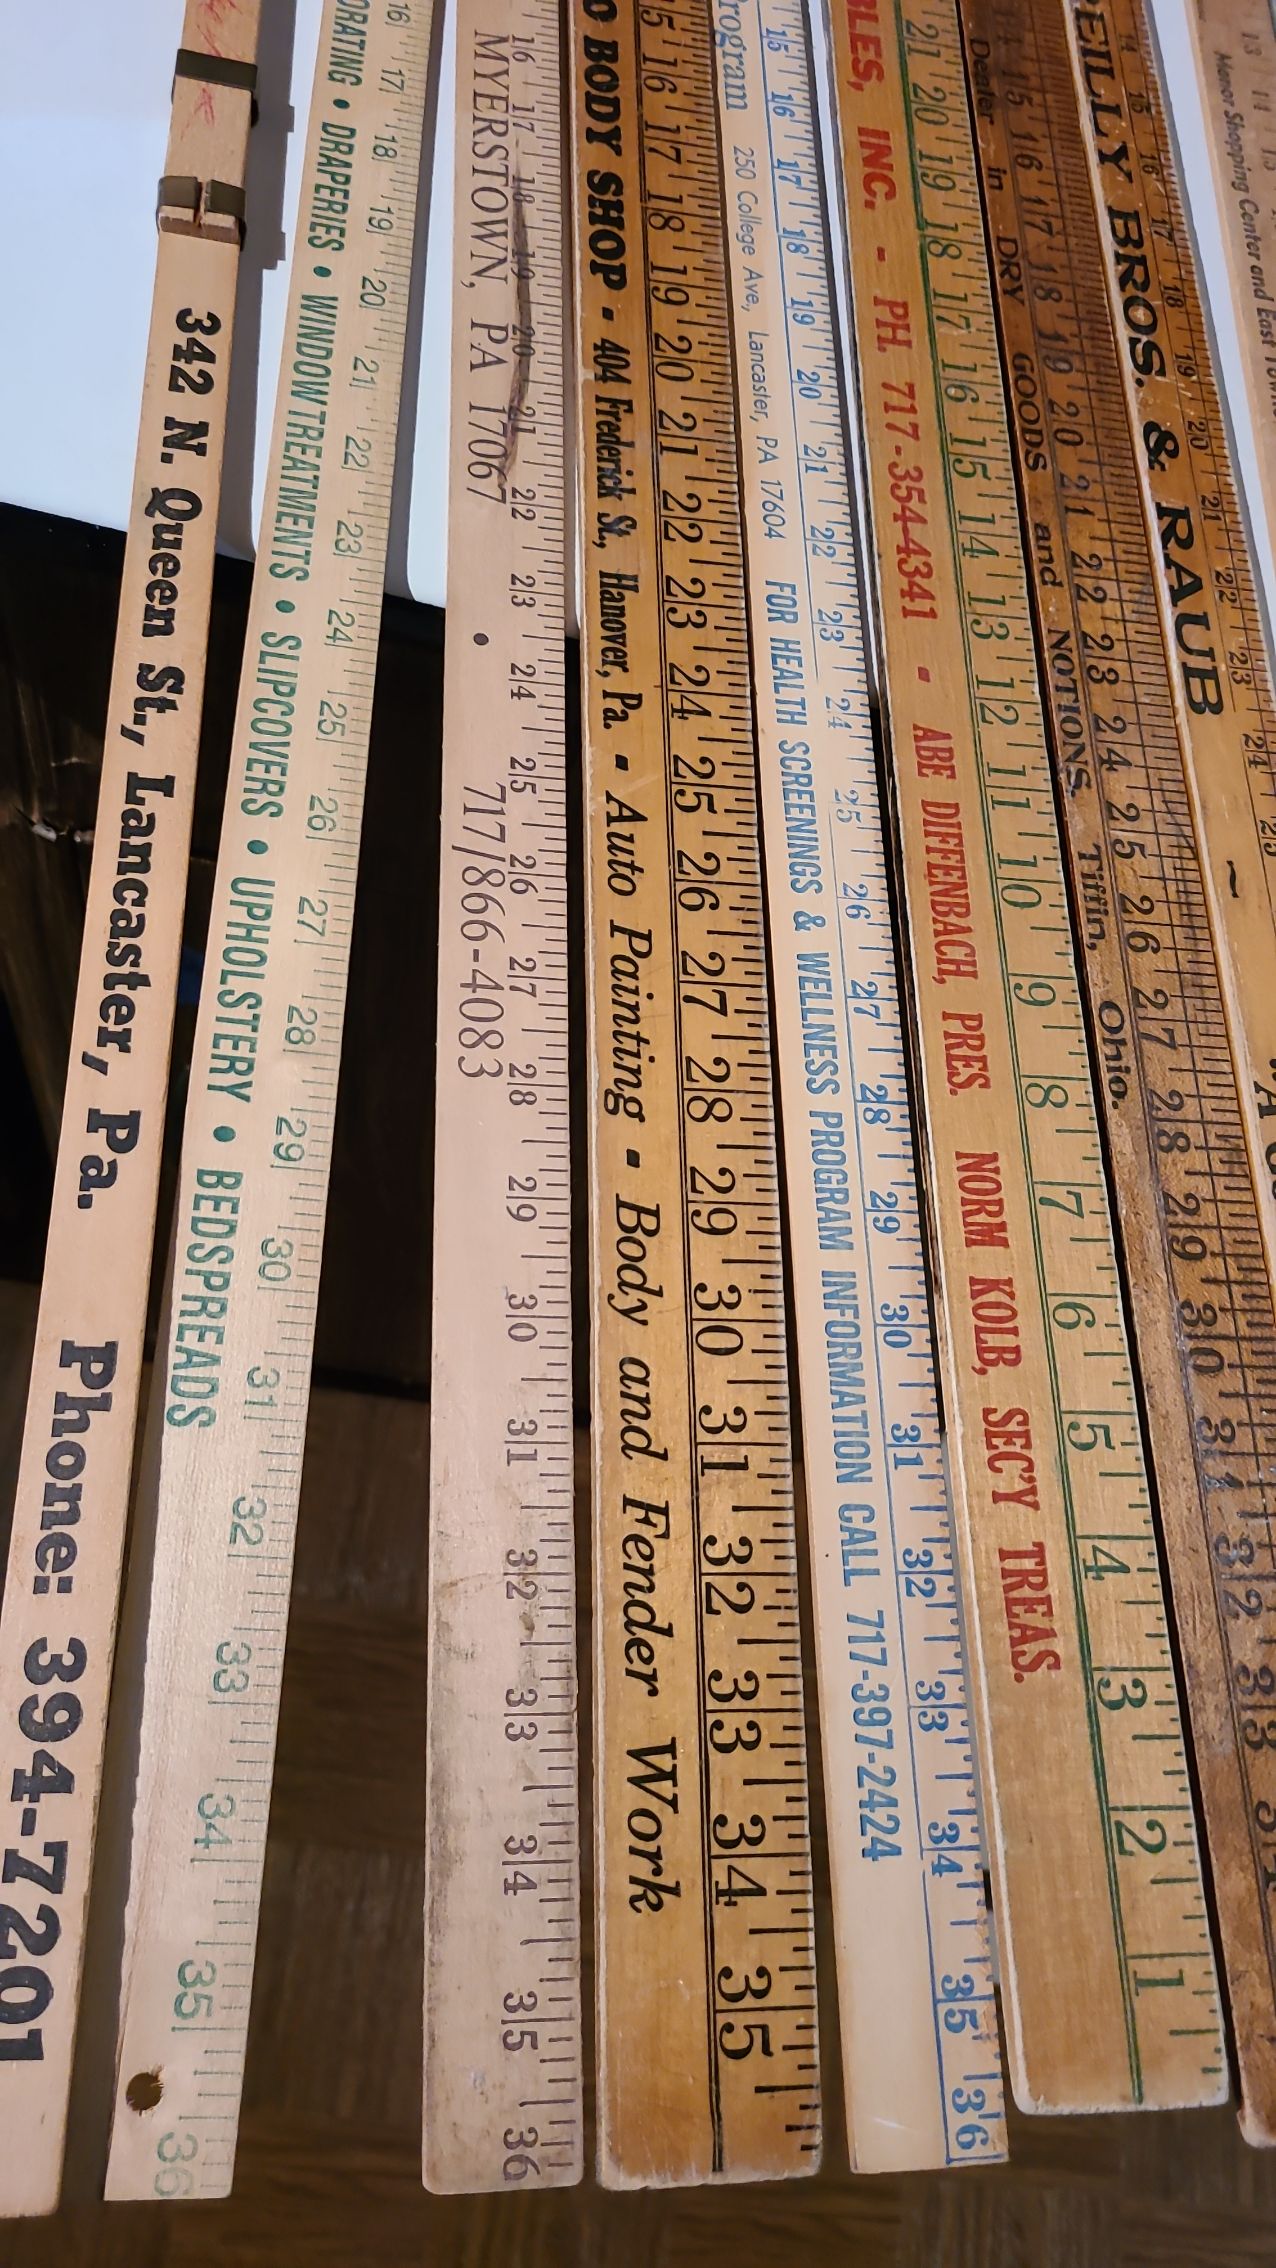 342 N. Queen St., Lancaster, Pa. Phone: 394-7201
DRAPERIES • WINDOW TREATMENTS • SLIPCOVERS • UPHOLSTERY • BEDSPREADS
16 17 18 19 20 21 22 23 24 25 26 27 28 29 30 31 32 33 34 35 36
MYERSTOWN, PA 17067 • 717/866-4083
16 17 18 19 20 21 22 23 24 25 26 27 28 29 30 31 32 33 34 35 36
BODY SHOP - 404 Frederick St., Hanover, Pa. - Auto Painting - Body and Fender Work
15 16 17 18 19 20 21 22 23 24 25 26 27 28 29 30 31 32 33 34 35
Program 250 College Ave., Lancaster, PA 17604 FOR HEALTH SCREENINGS & WELLNESS PROGRAM INFORMATION CALL 717-397-2424
15 16 17 18 19 20 21 22 23 24 25 26 27 28 29 30 31 32 33 34 35 36
BLES, INC. - PH. 717-354-4341 - ABE DIFFENBACH, PRES. NORM KOLB, SEC'Y TREAS.
21 20 19 18 17 16 15 14 13 12 11 10 9 8 7 6 5 4 3 2 1
Dealer in DRY GOODS and NOTIONS, Tiffin, Ohio.
15 16 17 18 19 20 21 22 23 24 25 26 27 28 29 30 31 32 33
EILLY BROS. & RAUB ~
15 16 17 18 19 20 21 22 23 24 25
Manor Shopping Center and East
13